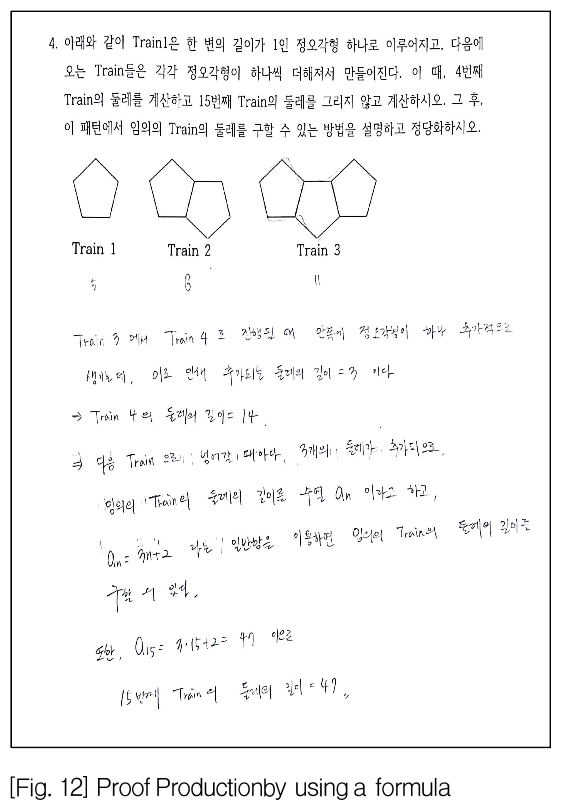 4. 아래와 같이 Train1은 한 변의 길이가 1인 정오각형 하나로 이루어지고, 다음에
오는 Train들은 각각 정오각형이 하나씩 더해져서 만들어진다. 이 때, 4번째
Train의 둘레를 계산하고 15번째 Train의 둘레를 그리지 않고 계산하시오. 그 후,
이 패턴에서 임의의 Train의 둘레를 구할 수 있는 방법을 설명하고 정당화하시오.
Train 1 Train 2 Train 3
5 8 11
Train 3 에서 Train 4 로 진행될 때 안쪽에 정오각형이 하나 추가적으로
생기는데, 이로 인해 추가되는 둘레의 길이 = 3 이다
→ Train 4 의 둘레의 길이 = 14.
⇒ 다음 Train 으로 넘어갈 때마다, 3개의 둘레가 추가되므로,
임의의 Train의 둘레의 길이를 수열 an 이라고 하고,
an = 3n+2 라는 일반항을 이용하면 임의의 Train의 둘레의 길이를
구할 수 있다.
또한, a15 = 3·15+2 = 47 이므로
15번째 Train의 둘레의 길이 = 47,,
[Fig. 12] Proof Productionby using a formula